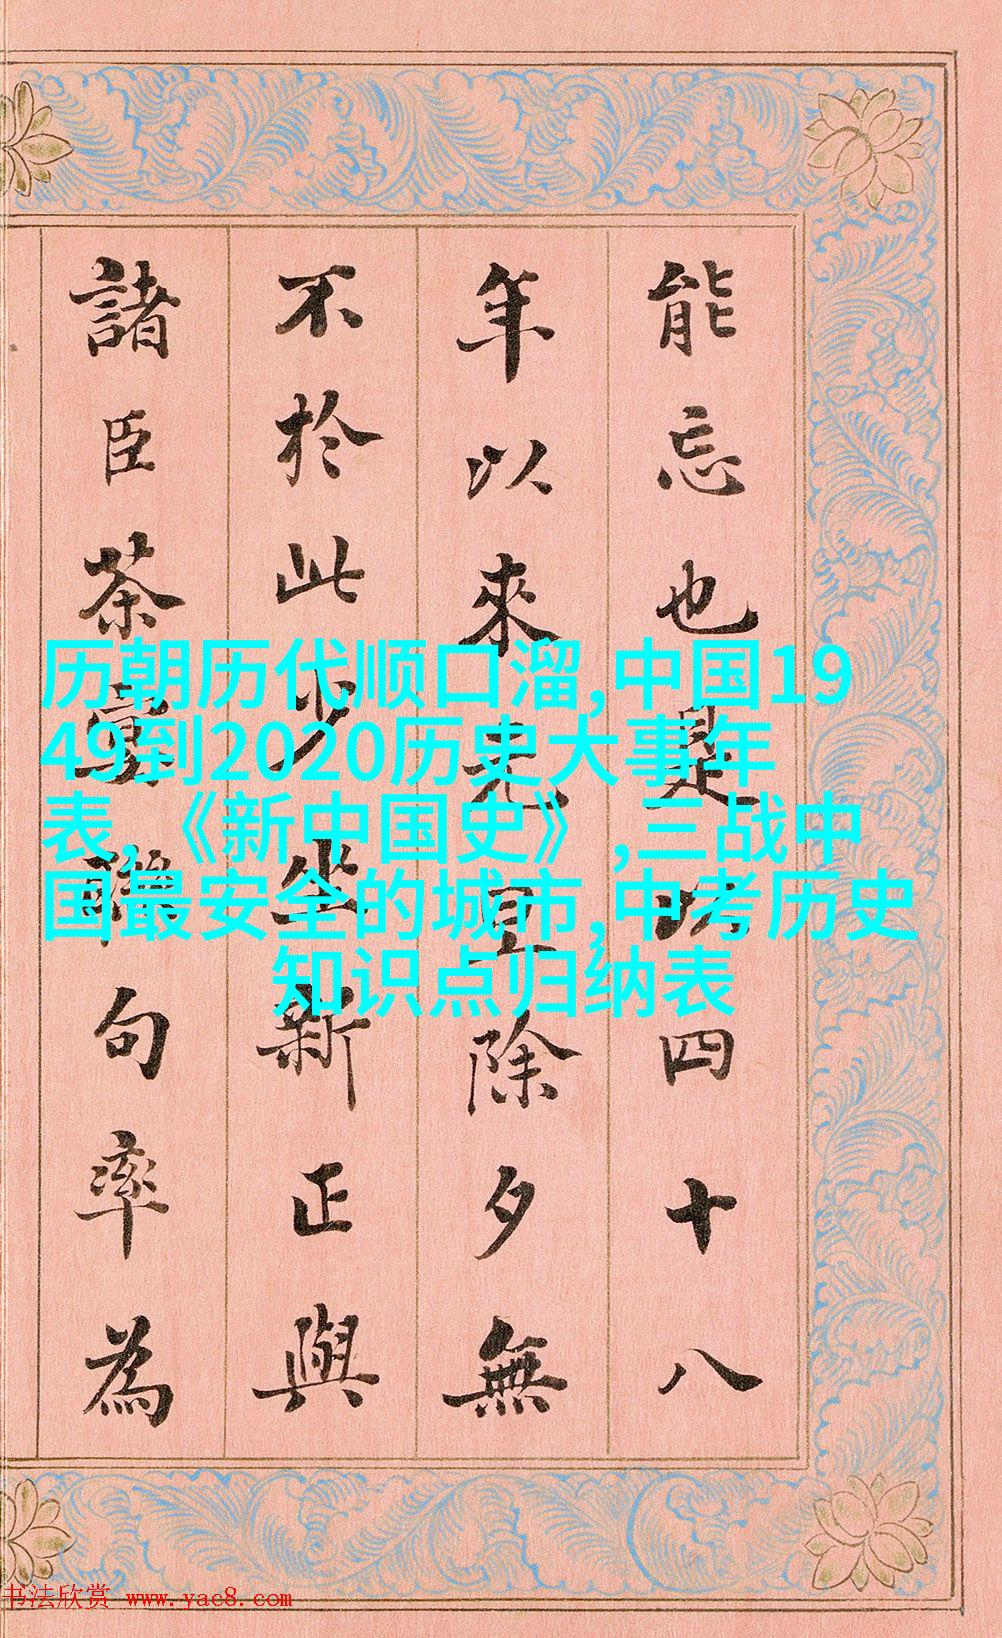 能忘也是以四十八
年以來元旦除夕無
不於此少坐新正與
諸臣茶宴聯句率為
历朝历代顺口溜,中国19
49到2020历史大事年
表,《新中国史》,三战中
国最安全的城市,中考历史
知识点归纳表
书法欣赏 www.yac8.com